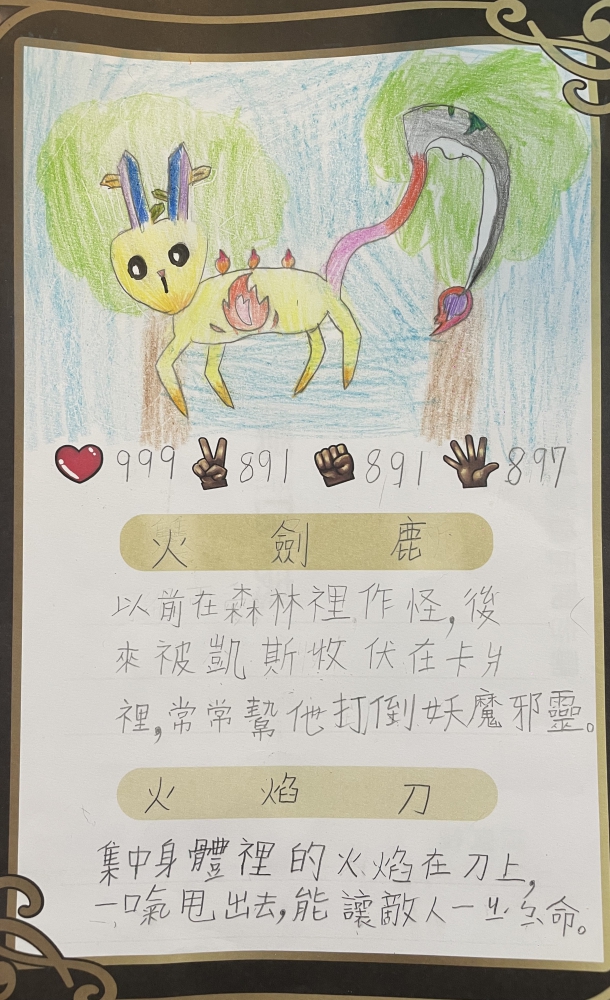 999 891 891 897
火劍鹿
以前在森林裡作怪,後
來被凱斯收伏在卡片
裡,常常幫他打倒妖魔邪靈。
火焰刀
集中身體裡的火焰在刀上,
一口氣甩出去,能讓敵人一必命。